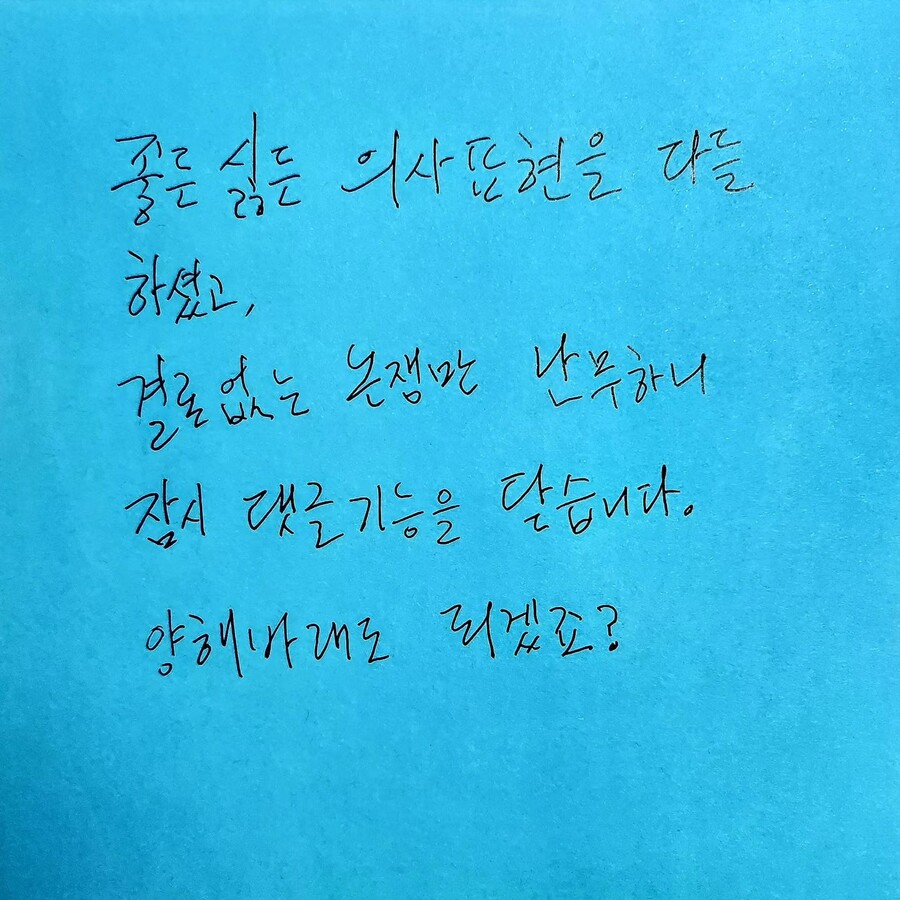 좋든싫든 의사표현을 다들
하셨고,
결론없는 논쟁만 난무하니
잠시 댓글기능을 닫습니다.
양해바래도 되겠죠?